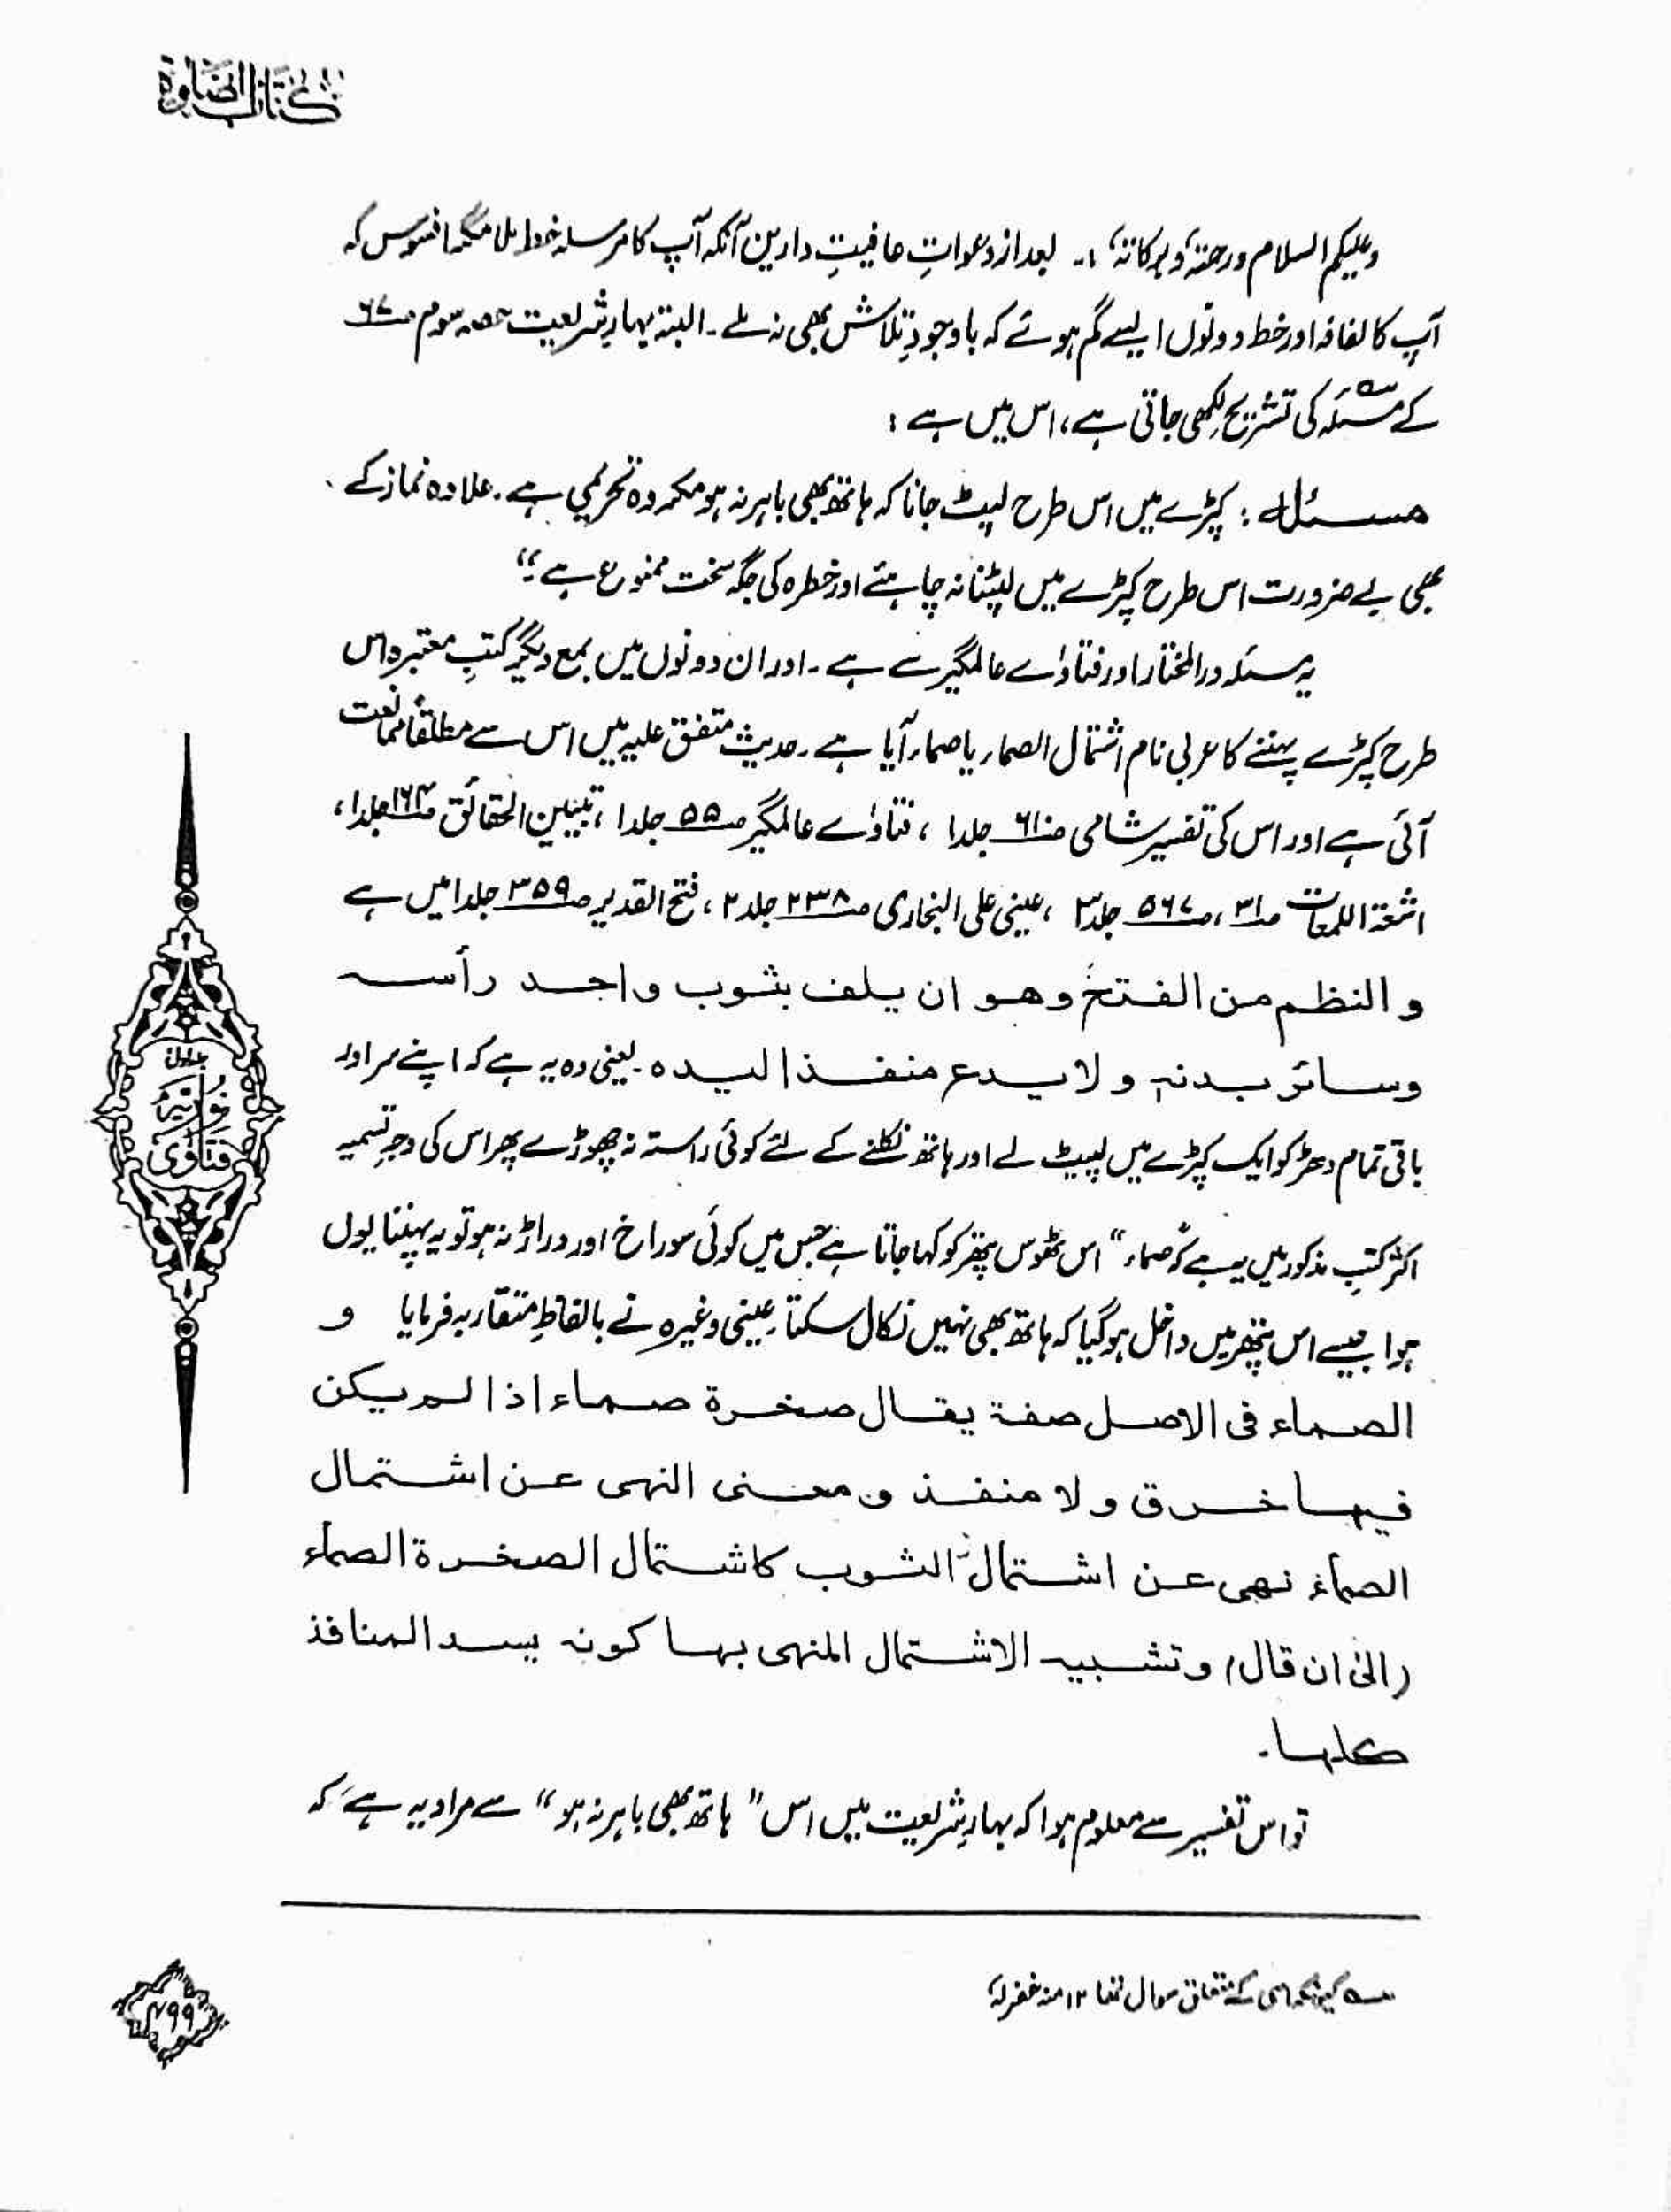 کتاب الصلوٰة
وعلیکم السلام ورحمتہ وبرکاتہ، :۔ بعد از دعواتِ عافیتِ دارین آنکہ آپ کا مرسلہ خط ملا مگر افسوس کہ
آپ کا لفافہ اور خط دونوں ایسے گم ہوئے کہ باوجودِ تلاش بھی نہ ملے ۔ البتہ بہارِ شریعت حصہ سوم صـ۶۷
کے مسئلہ کی تشریح لکھی جاتی ہے، اس میں ہے :
مسئلہ : کپڑے میں اس طرح لپٹ جانا کہ ہاتھ بھی باہر نہ ہو مکروہ تحریمی ہے ۔ علاوہ نماز کے
بھی بے ضرورت اس طرح کپڑے میں لپٹنا نہ چاہئے اور خطرہ کی جگہ سخت ممنوع ہے ؛"
یہ مسئلہ درالمختار اور فتاوٰے عالمگیر سے ہے ۔ اور ان دونوں میں بمع دیگر کتبِ معتبرہ اس
طرح کپڑے پہننے کا عربی نام اشتمال الصماء یا صماء آیا ہے ۔ حدیث متفق علیہ میں اس سے مطلقًا ممانعت
آئی ہے اور اس کی تفسیر شامی صـ۶۱۰ جلد۱ ، فتاوٰے عالمگیر صـ۵۵ جلد۱ ، تبیین الحقائق صـ۱۶۴ جلد۱ ،
اشعۃ اللمعات صـ۳۱ ، صـ۵۶۷ جلد۳ ، عینی علی البخاری صـ۲۳۸ جلد۲ ، فتح القدیر صـ۳۵۹ جلد۱ میں ہے
و النظم من الفتح وهو ان يلف بثوب واحد رأسه
وسائر بدنہ و لا يدع منفذا لیدہ ۔ یعنی وہ یہ ہے کہ اپنے سر اور
باقی تمام دھڑ کو ایک کپڑے میں لپیٹ لے اور ہاتھ نکلنے کے لئے کوئی راستہ نہ چھوڑے پھر اس کی وجہِ تسمیہ
اکثر کتبِ مذکور میں یہ ہے کہ "صماء" اس ٹھوس پتھر کو کہا جاتا ہے جس میں کوئی سوراخ اور دراڑ نہ ہو تو یہ پہننا یوں
ہوا جیسے اس پتھر میں داخل ہو گیا کہ ہاتھ بھی نہیں نکال سکتا ۔ عینی وغیرہ نے بالفاظِ متقاربہ فرمایا و
الصماء فی الاصل صفۃ يقال صخرة صماء اذا لم يكن
فيها خرق و لا منفذ و معنى النهى عن اشتمال
الصماء نهى عن اشتمال الثوب كاشتمال الصخرة الصماء
(الیٰ ان قال) و تشبيه الاشتمال المنهى بها كونہ يسد المنافذ
كلها ۔
تو اس تفسیر سے معلوم ہوا کہ بہارِ شریعت میں اس " ہاتھ بھی باہر نہ ہو" سے مراد یہ ہے کہ
جلداول
نوریہ
فتاوٰی
ـہ کیونکہ اسی کے متعلق سوال تھا ۱۲ منہ غفرلہٗ
۴۹۹